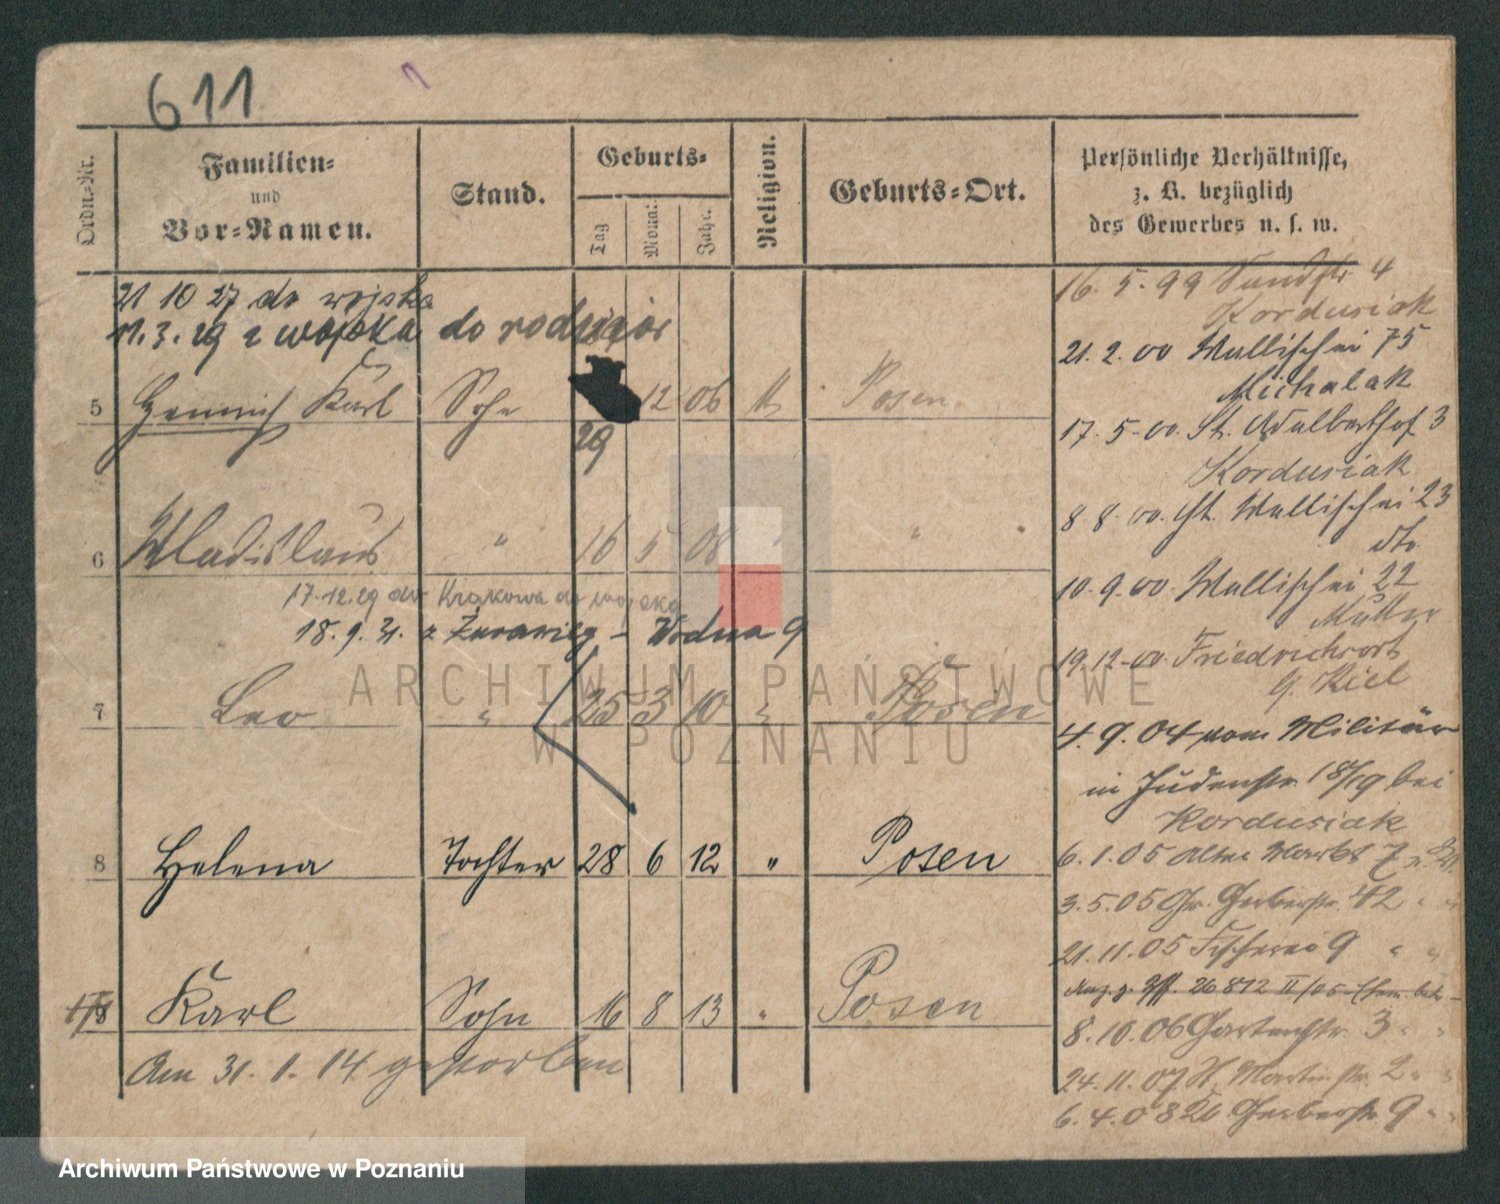 611
1
Ordn.-Nr.
Familien-
und
Vor-Namen.
Stand.
Geburts-
Tag
Mona:
Jahr.
Religion.
Geburts-Ort.
Persönliche Verhältnisse,
z. B. bezüglich
des Gewerbes u. s. w.
21 10 27 do wojska
11.3.29 z wojska do rodziców
5 Heinrich Karl Sohn 12 06 Posen
29
6 Wladislaus " 16 5 08 " "
17.12.29 do Krakowa do wojska
18.9.31. z Żurawicy - Wodna 9
7 Leo " 25 3 10 " Posen
8 Helena Tochter 28 6 12 " Posen
8 Karl Sohn 16 8 13 " Posen
Am 31. 1. 14 gestorben
16. 5. 99 Sandstr 4
Kordusiak
21. 2. 00 Wallischei 75
Michalak
17. 5. 00. St. Adalberthof 3
Kordusiak
8 8. 00. Wallischei 23
dto
10. 9. 00. Wallischei 22
Mutter
19.12.00 Friedrichsort
b. Kiel
4. 9. 04 vom Militär
in Judenstr. 18/19 bei
Kordusiak
6. 1. 05 Alter Markt 7
3. 5. 05 Gr. Gerberstr. 42 " "
21. 11. 05 Fischerei 9 " "
26812 II/05
8. 10. 06 Gartenstr. 3 " "
24. 11. 07 St. Martinstr. 2 " "
6. 4. 08 Kl. Gerberstr 9 " "
ARCHIWUM PAŃSTWOWE
W POZNANIU
Archiwum Państwowe w Poznaniu